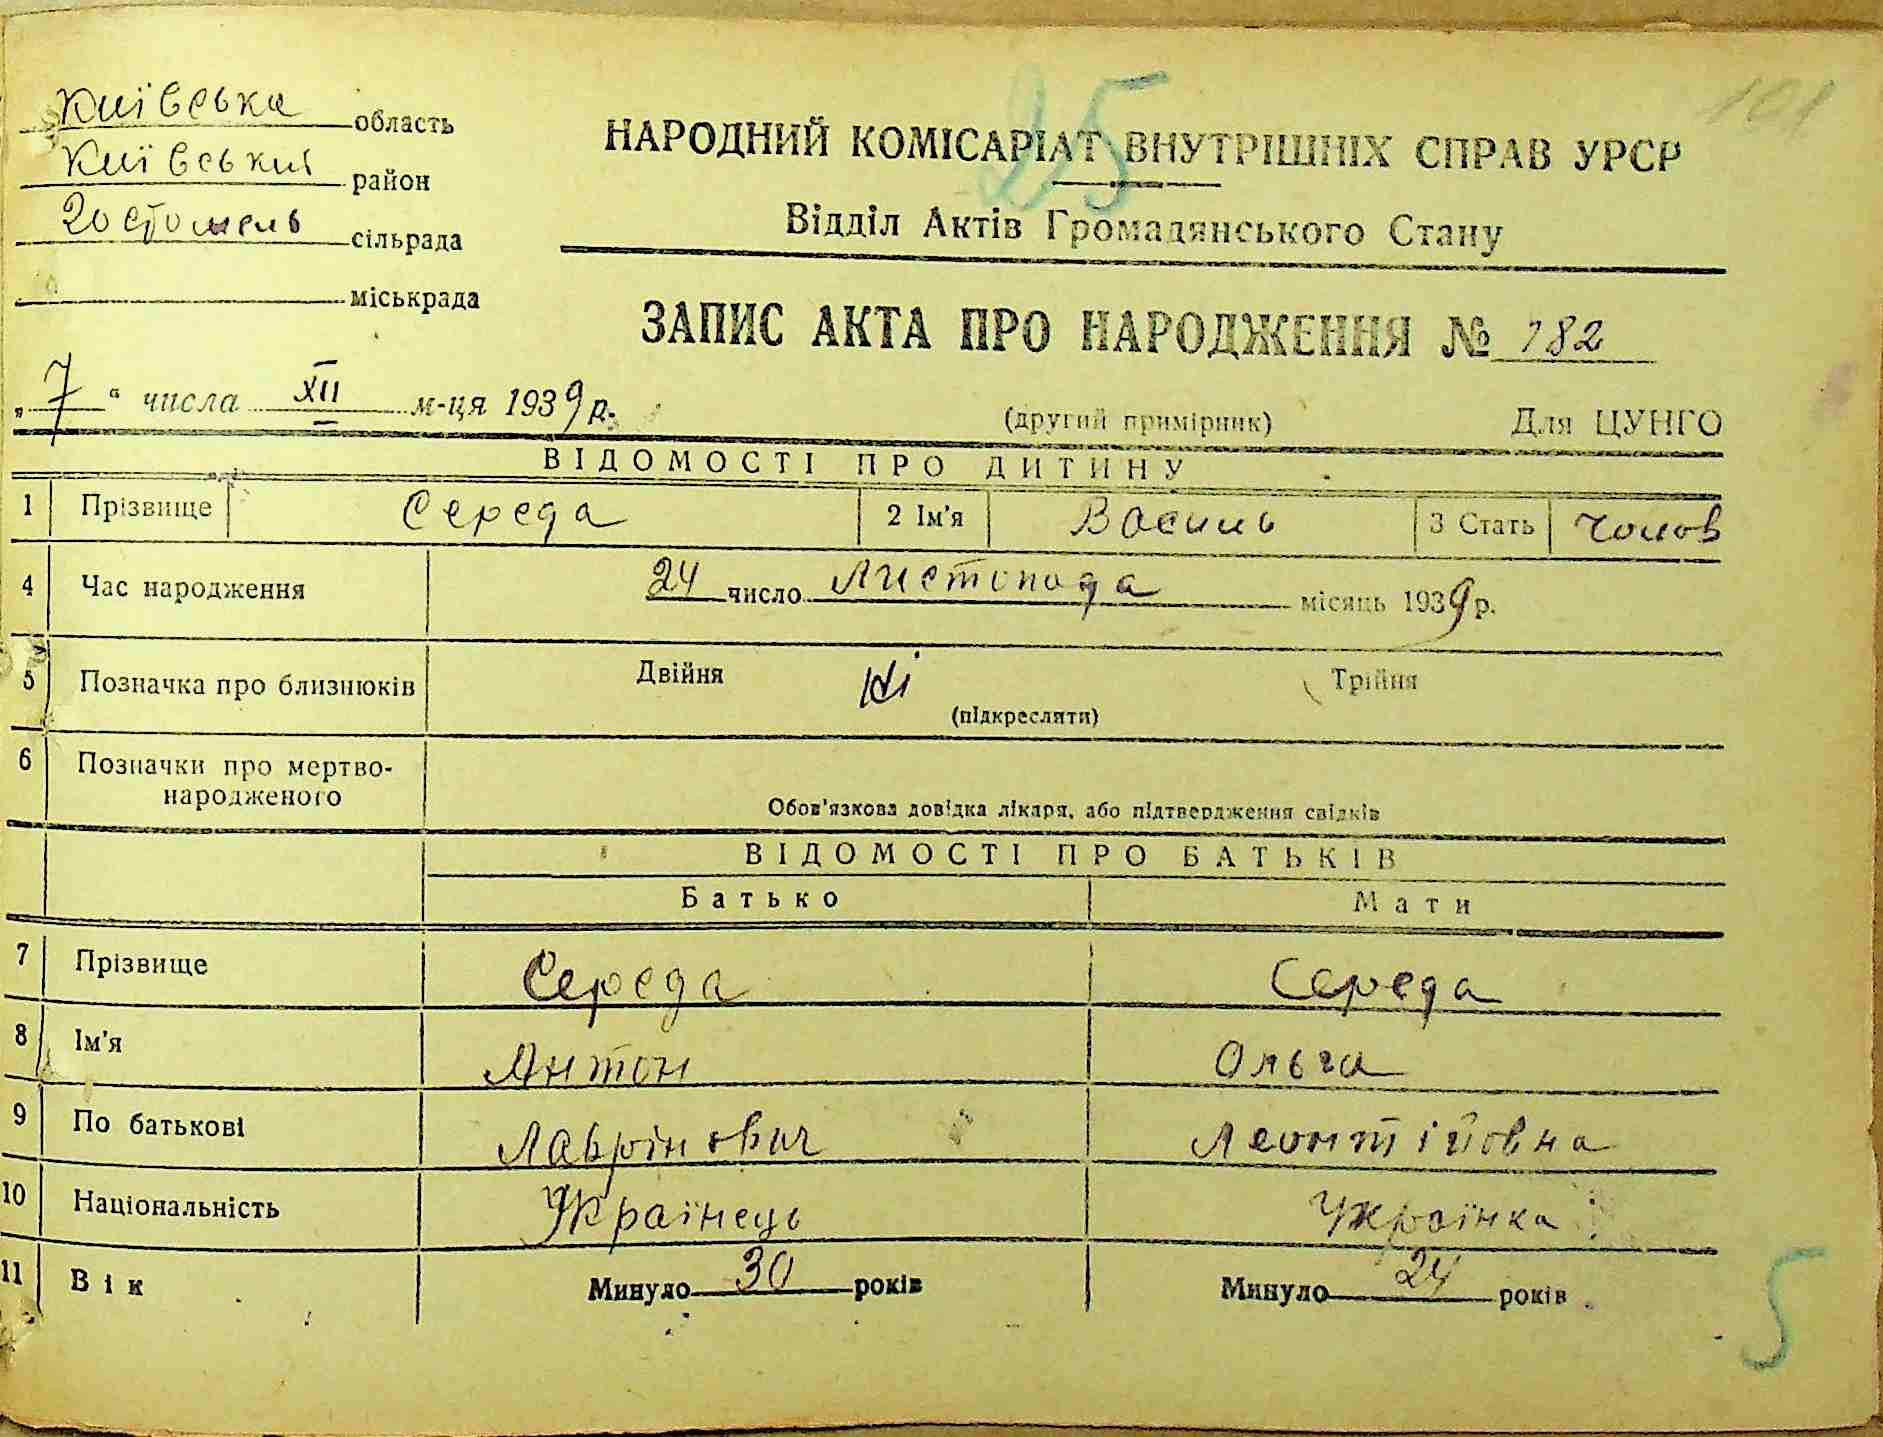 Київська область
Київський район
Гостомель сільрада
міськрада
25
101
НАРОДНИЙ КОМІСАРІАТ ВНУТРІШНІХ СПРАВ УРСР
Відділ Актів Громадянського Стану
ЗАПИС АКТА ПРО НАРОДЖЕННЯ № 182
„7“ числа XII м-ця 1939 р.
(другий примірник) Для ЦУНГО
ВІДОМОСТІ ПРО ДИТИНУ
1 Прізвище Середа 2 Ім'я Василь 3 Стать чолов
4 Час народження 24 число Листопада місяць 1939 р.
5 Позначка про близнюків Двійня ні Трійня
(підкреслити)
6 Позначки про мертво-
народженого
Обов'язкова довідка лікаря, або підтвердження свідків
ВІДОМОСТІ ПРО БАТЬКІВ
Батько Мати
7 Прізвище Середа Середа
8 Ім'я Антон Ольга
9 По батькові Лаврінович Леонтіївна
10 Національність Українець Українка
11 Вік Минуло 30 років Минуло 24 років
5